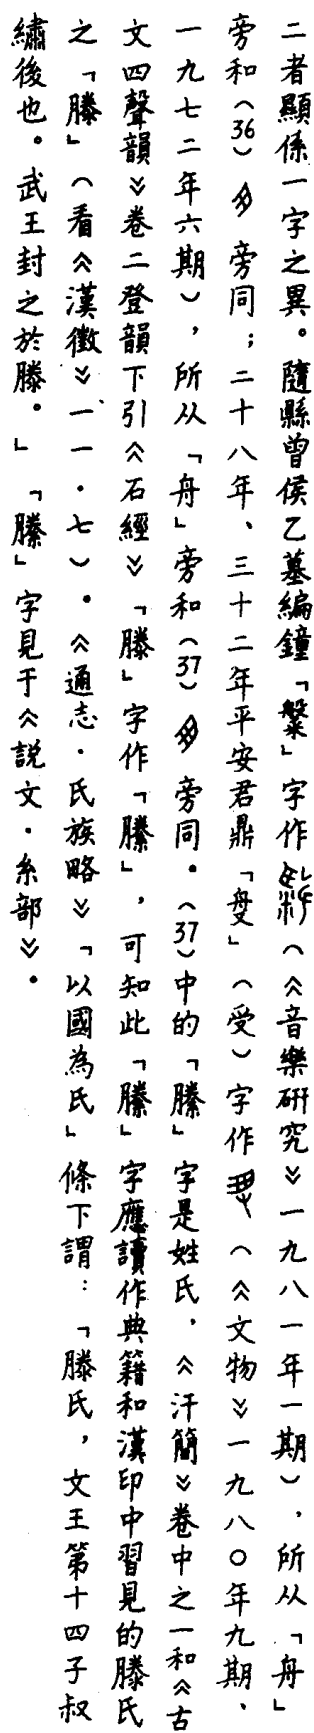 二者顯係一字之異。隨縣曾侯乙墓編鐘「槃」字作（《音樂研究》一九八一年一期），所从「舟」
旁和（36）旁同；二十八年、三十二年平安君鼎「受」（受）字作（《文物》一九八〇年九期、
一九七二年六期），所从「舟」旁和（37）旁同。（37）中的「縢」字是姓氏，《汗簡》卷中之一和《古
文四聲韻》卷二登韻下引《石經》「滕」字作「縢」，可知此「縢」字應讀作典籍和漢印中習見的滕氏
之「滕」（看《漢徵》一一·七）。《通志·氏族略》「以國為氏」條下謂：「滕氏，文王第十四子叔
繡後也。武王封之於滕。」「縢」字見于《說文·糸部》。